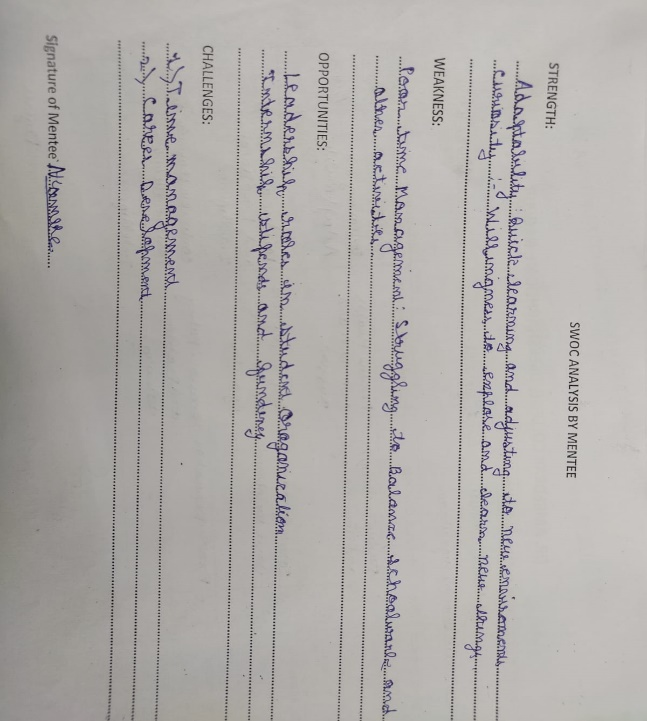 SWOC ANALYSIS BY MENTEE
STRENGTH:
Adaptability : Quick learning and adjusting to new enviroments
Curiosity :- Willingness to explore and learn new things
WEAKNESS:
Poor time Management : Struggling to Balance schoolwork and
other activities
OPPORTUNITIES:
Leadership roles in student Oraganization
Internship stipends and funding
CHALLENGES:
1) Time management
2) Career Development
Signature of Mentee